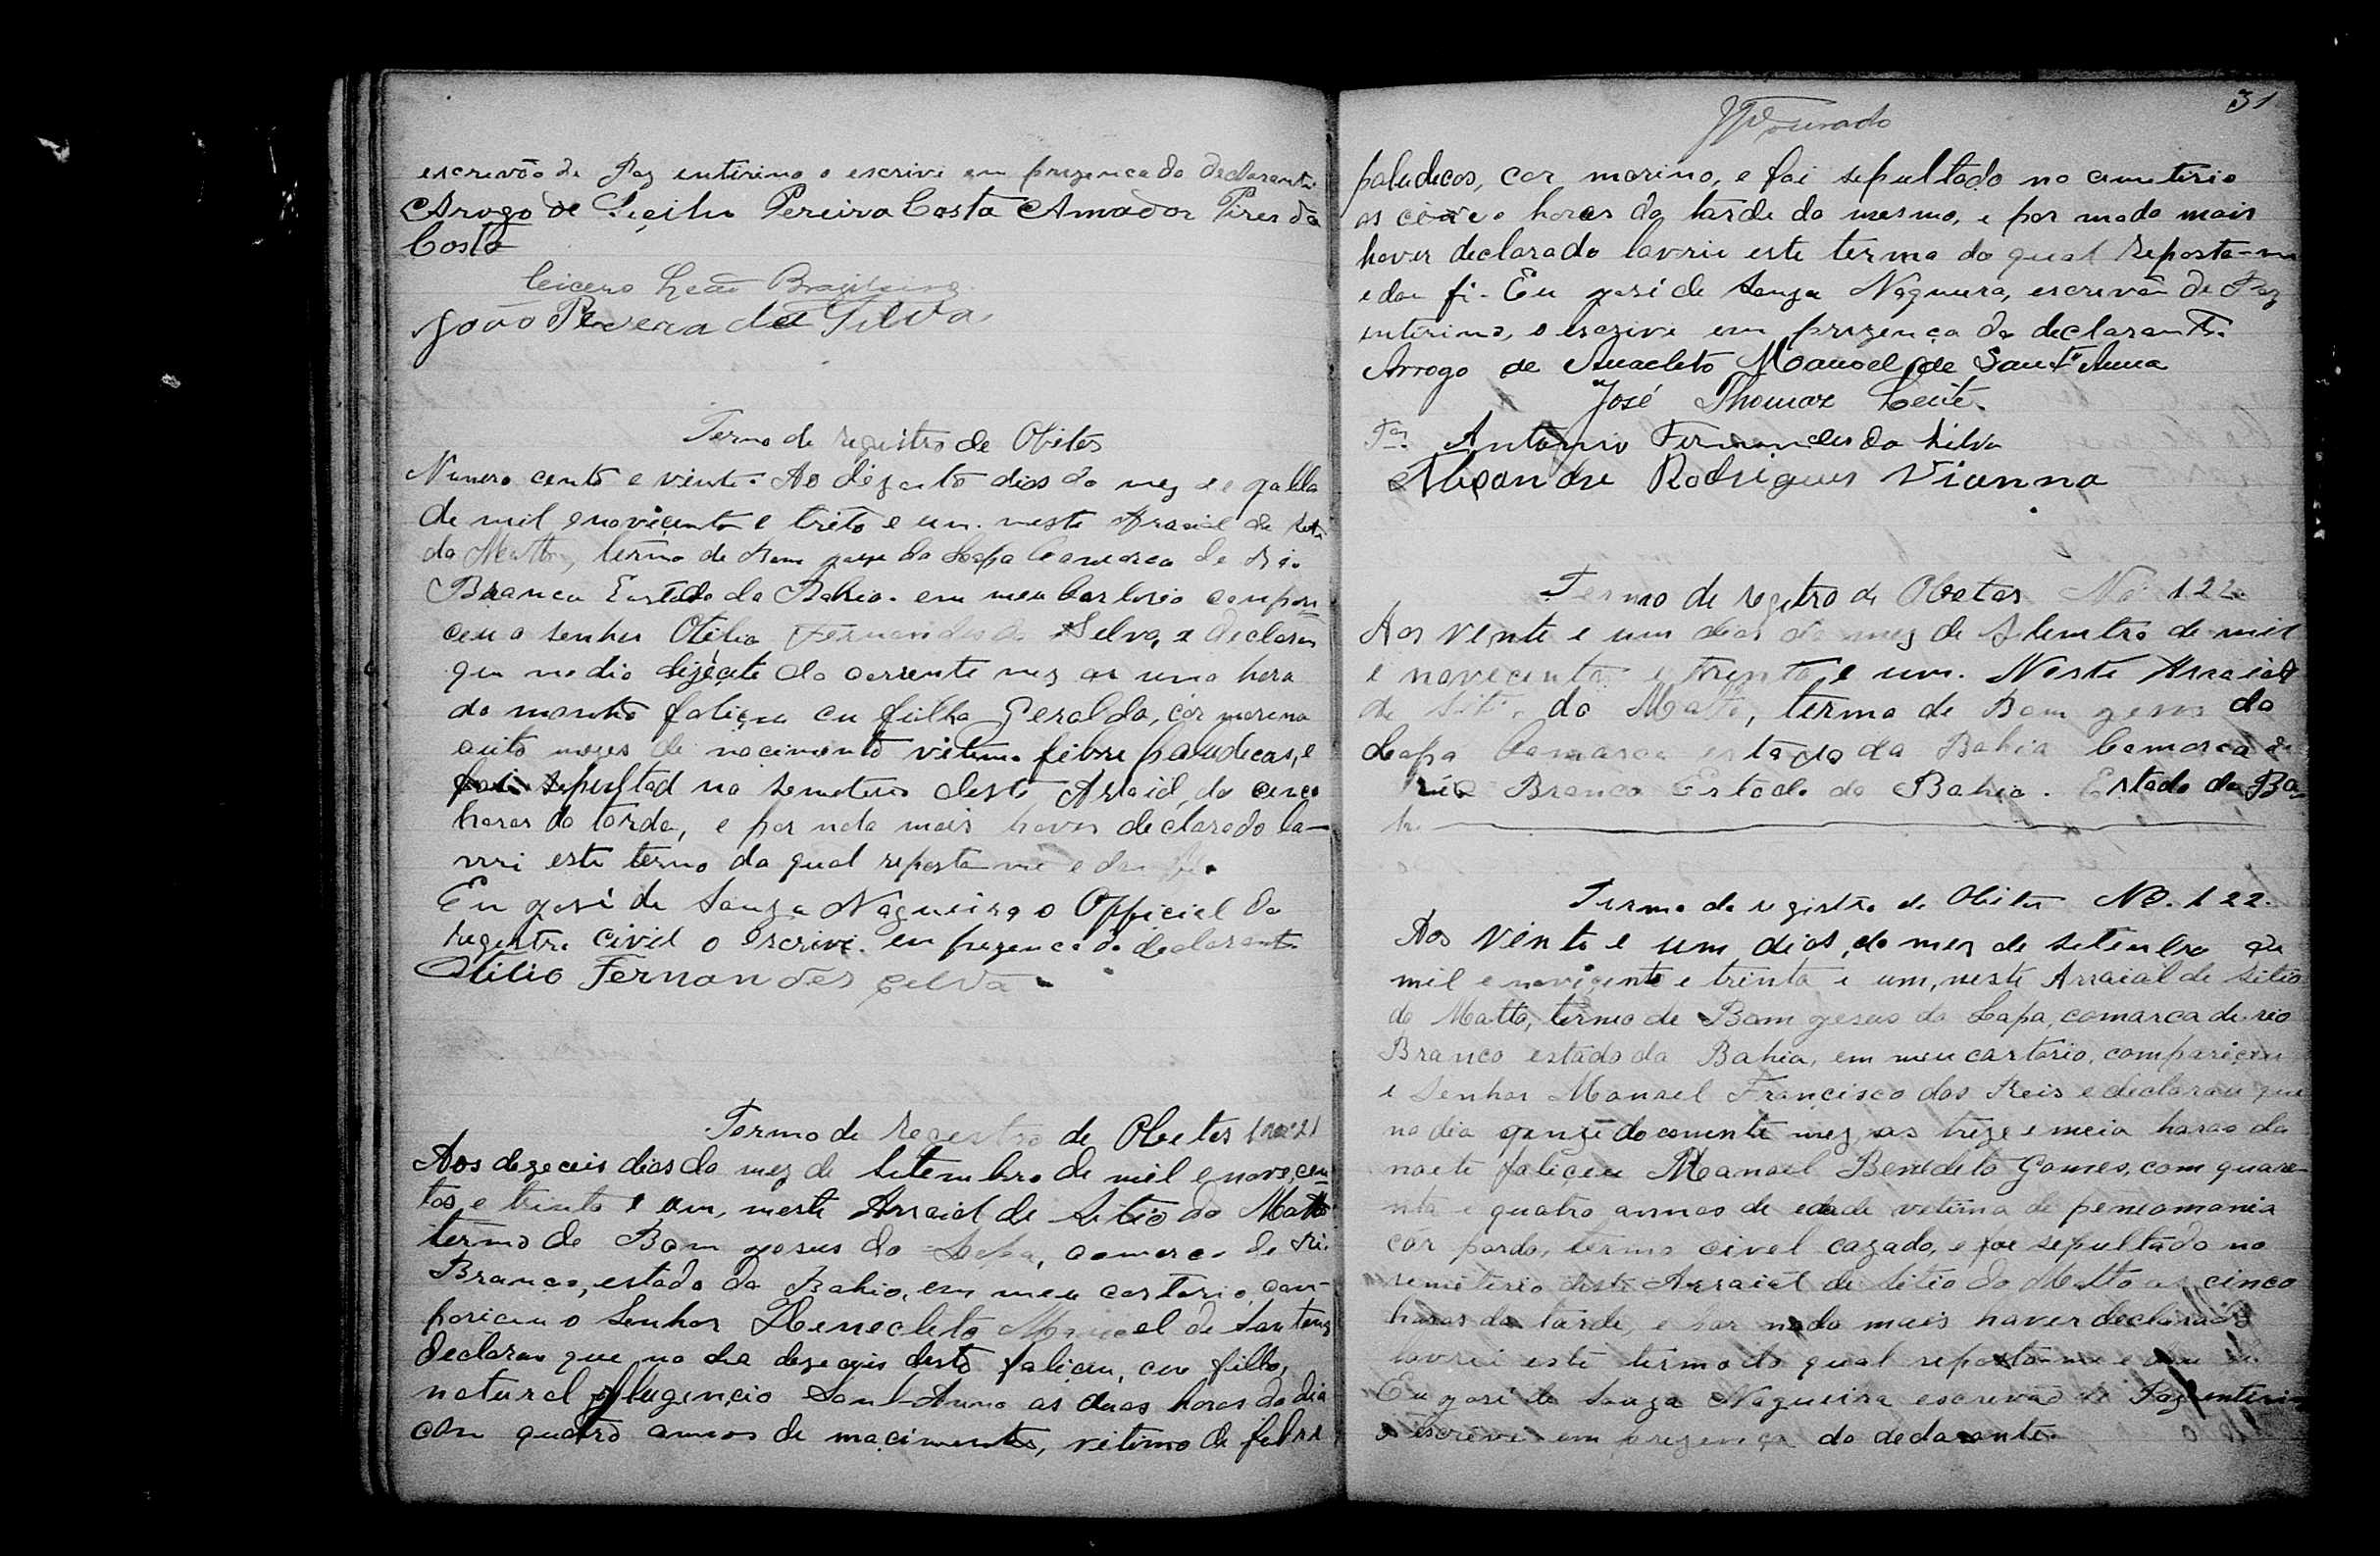 escrevão de Paz entirino o escrivi em prezenca do declarante
Arrogo de Pereira Costa Amador Pires da
Costa
Cicero Leão Brazileiro
João Pereira da Silva
Termo de registro de Obitos
Numero cento e vinte. Ao dizoito dias do mez de
de mil e noviçento e trito e um. neste Arraial de
do Matto, termo de Bom da Lapa Comarca de Rio
Branco Estado da Bahia. em meu Cartorio compari
ceu o senhor Otilio Fernandes da Silva, e declarou
que no dia dizoito do corrente mez as uma hora
da manhã faliçeu cu filha Geralda, cór morena
oito mezes de nacimento vitima febre paludicas, e
foi sepultad no semeterio deste Arraial, as cinco
horas da tarde, e por nada mais haver declarado la-
vrei este termo da qual reporto-me e dou fé.
Eu José de Souza Nogueira o Official do
registro civil o escrivi. em prezenca do declarante
Otilio Fernandes Çilva
Termo de registro de Obetos No 121
Aos dezeceis dias do mez de Setembro de mil e nove,cen
tos e trinta e um, neste Arraial de Sitio do Matto
termo de Bom gesus da Lapa, comarca de Ri.
Branco, estado da Bahia, em meu cartorio, com-
pariceu o Senhor Manoel de
declarou que no dia dezeceis deste faliceu, ceu filho,
natural Sant-Anna as duas horas do dia
com quatro annos de naçimento, vitimo de febre
31
Dourado
paludecos, cor morino, e foi sepultado no cimeterio
as cinco horas da tarde do mesmo, e por nada mais
haver declarado lavrei este termo do qual reporto-me
e dou fi. Eu José de Souza Nogueira, escrevão de Paz
interino, o escrive em prezença do declarante.
Arrogo de Anacleto Manoel de Sant'Anna
José Thomaz Leite.
Tas. Antonio Fernandes da Silva
Aleçandre Rodrigues Vianna
Termo de registro de Obetos No 122
Aos vente e um dias do mez de Setembro de mil
e novecento e trinta e um. Neste Arraial
de Sitio do Matto, termo de Bom gesus da
Lapa Comarca estado da Bahia Comarca de
rio Branco Estado da Bahia. Estado da Ba-
hi
Termo de registro de Obitos No. 122.
Aos vinte e um dias, do mez de setembro de
mil e noviçento e trinta e um, neste Arraial de sitio
do Matto, termo de Bom gesus da Lapa, comarca de rio
Branco estado da Bahia, em meu cartorio, compariçeu
o Senhor Manoel Françisco dos Reis e declarou que
no dia quinze do corrente mez, as treze e meia horas da
noite faliçeu Manoel Benedeto Gomes, com quare-
nta e quatro annos de edade vetima de peneomonia
cór pardo, termo civel cazado, e foi sepultado no
semeterio deste Arraial de Sitio do Matto as cinco
horas da tarde, e por nada mais haver declarado
lavrei este termo do qual reporto-me e dou fé.
Eu José de Souza Nogueira escrevão de Paz enterino
o escrevi em prezença do declarante.